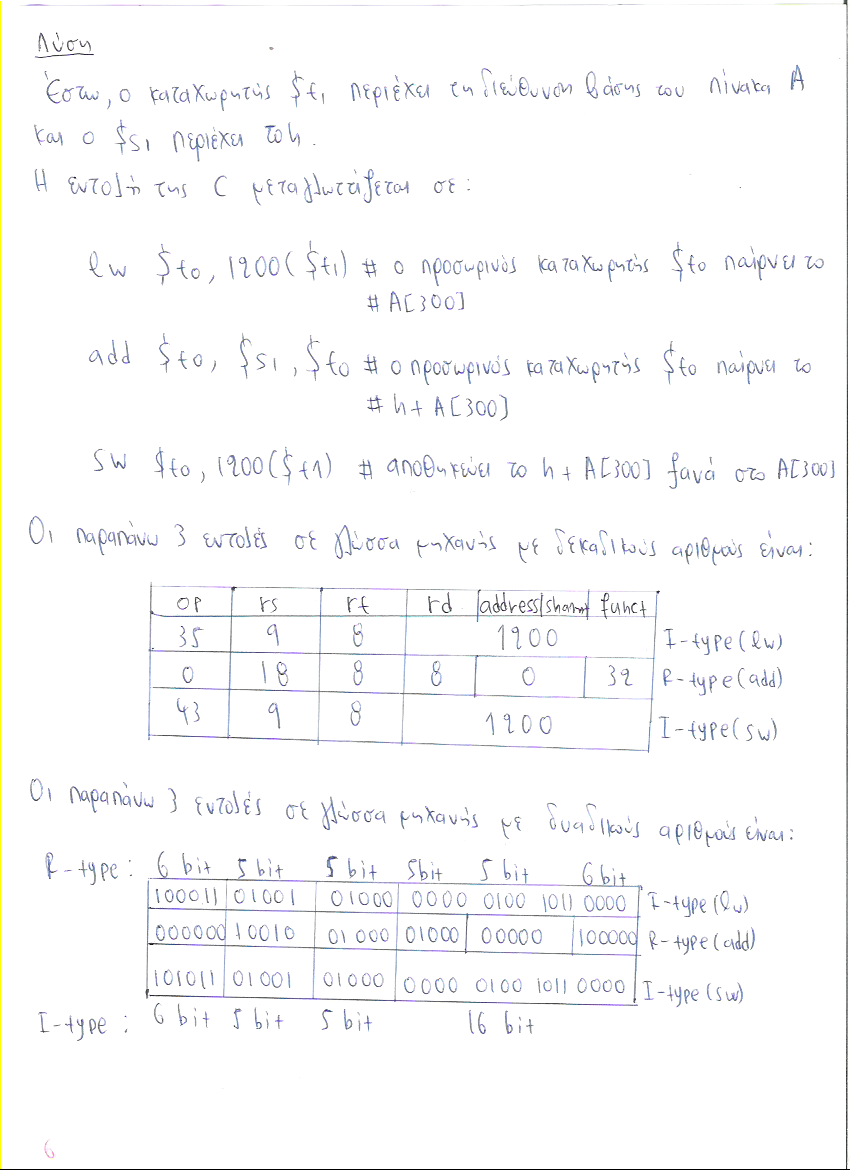 Λύση
Έστω, ο καταχωρητής $t1 περιέχει τη διεύθυνση βάσης του πίνακα A
και ο $s1 περιέχει το h.
Η εντολή της C μεταγλωττίζεται σε:
lw $t0, 1200($t1) # ο προσωρινός καταχωρητής $t0 παίρνει το
# A[300]
add $t0, $s1, $t0 # ο προσωρινός καταχωρητής $t0 παίρνει το
# h + A[300]
sw $t0, 1200($t1) # αποθηκεύει το h + A[300] ξανά στο A[300]
Οι παραπάνω 3 εντολές σε γλώσσα μηχανής με δεκαδικούς αριθμούς είναι:
op rs rt rd address/shamt funct
35 9 8 1200 I-type (lw)
0 18 8 8 0 32 R-type (add)
43 9 8 1200 I-type (sw)
Οι παραπάνω 3 εντολές σε γλώσσα μηχανής με δυαδικούς αριθμούς είναι:
R-type: 6 bit 5 bit 5 bit 5bit 5 bit 6 bit
100011 01001 01000 0000 0100 1011 0000 I-type (lw)
000000 10010 01000 01000 00000 100000 R-type (add)
101011 01001 01000 0000 0100 1011 0000 I-type (sw)
I-type: 6 bit 5 bit 5 bit 16 bit
6